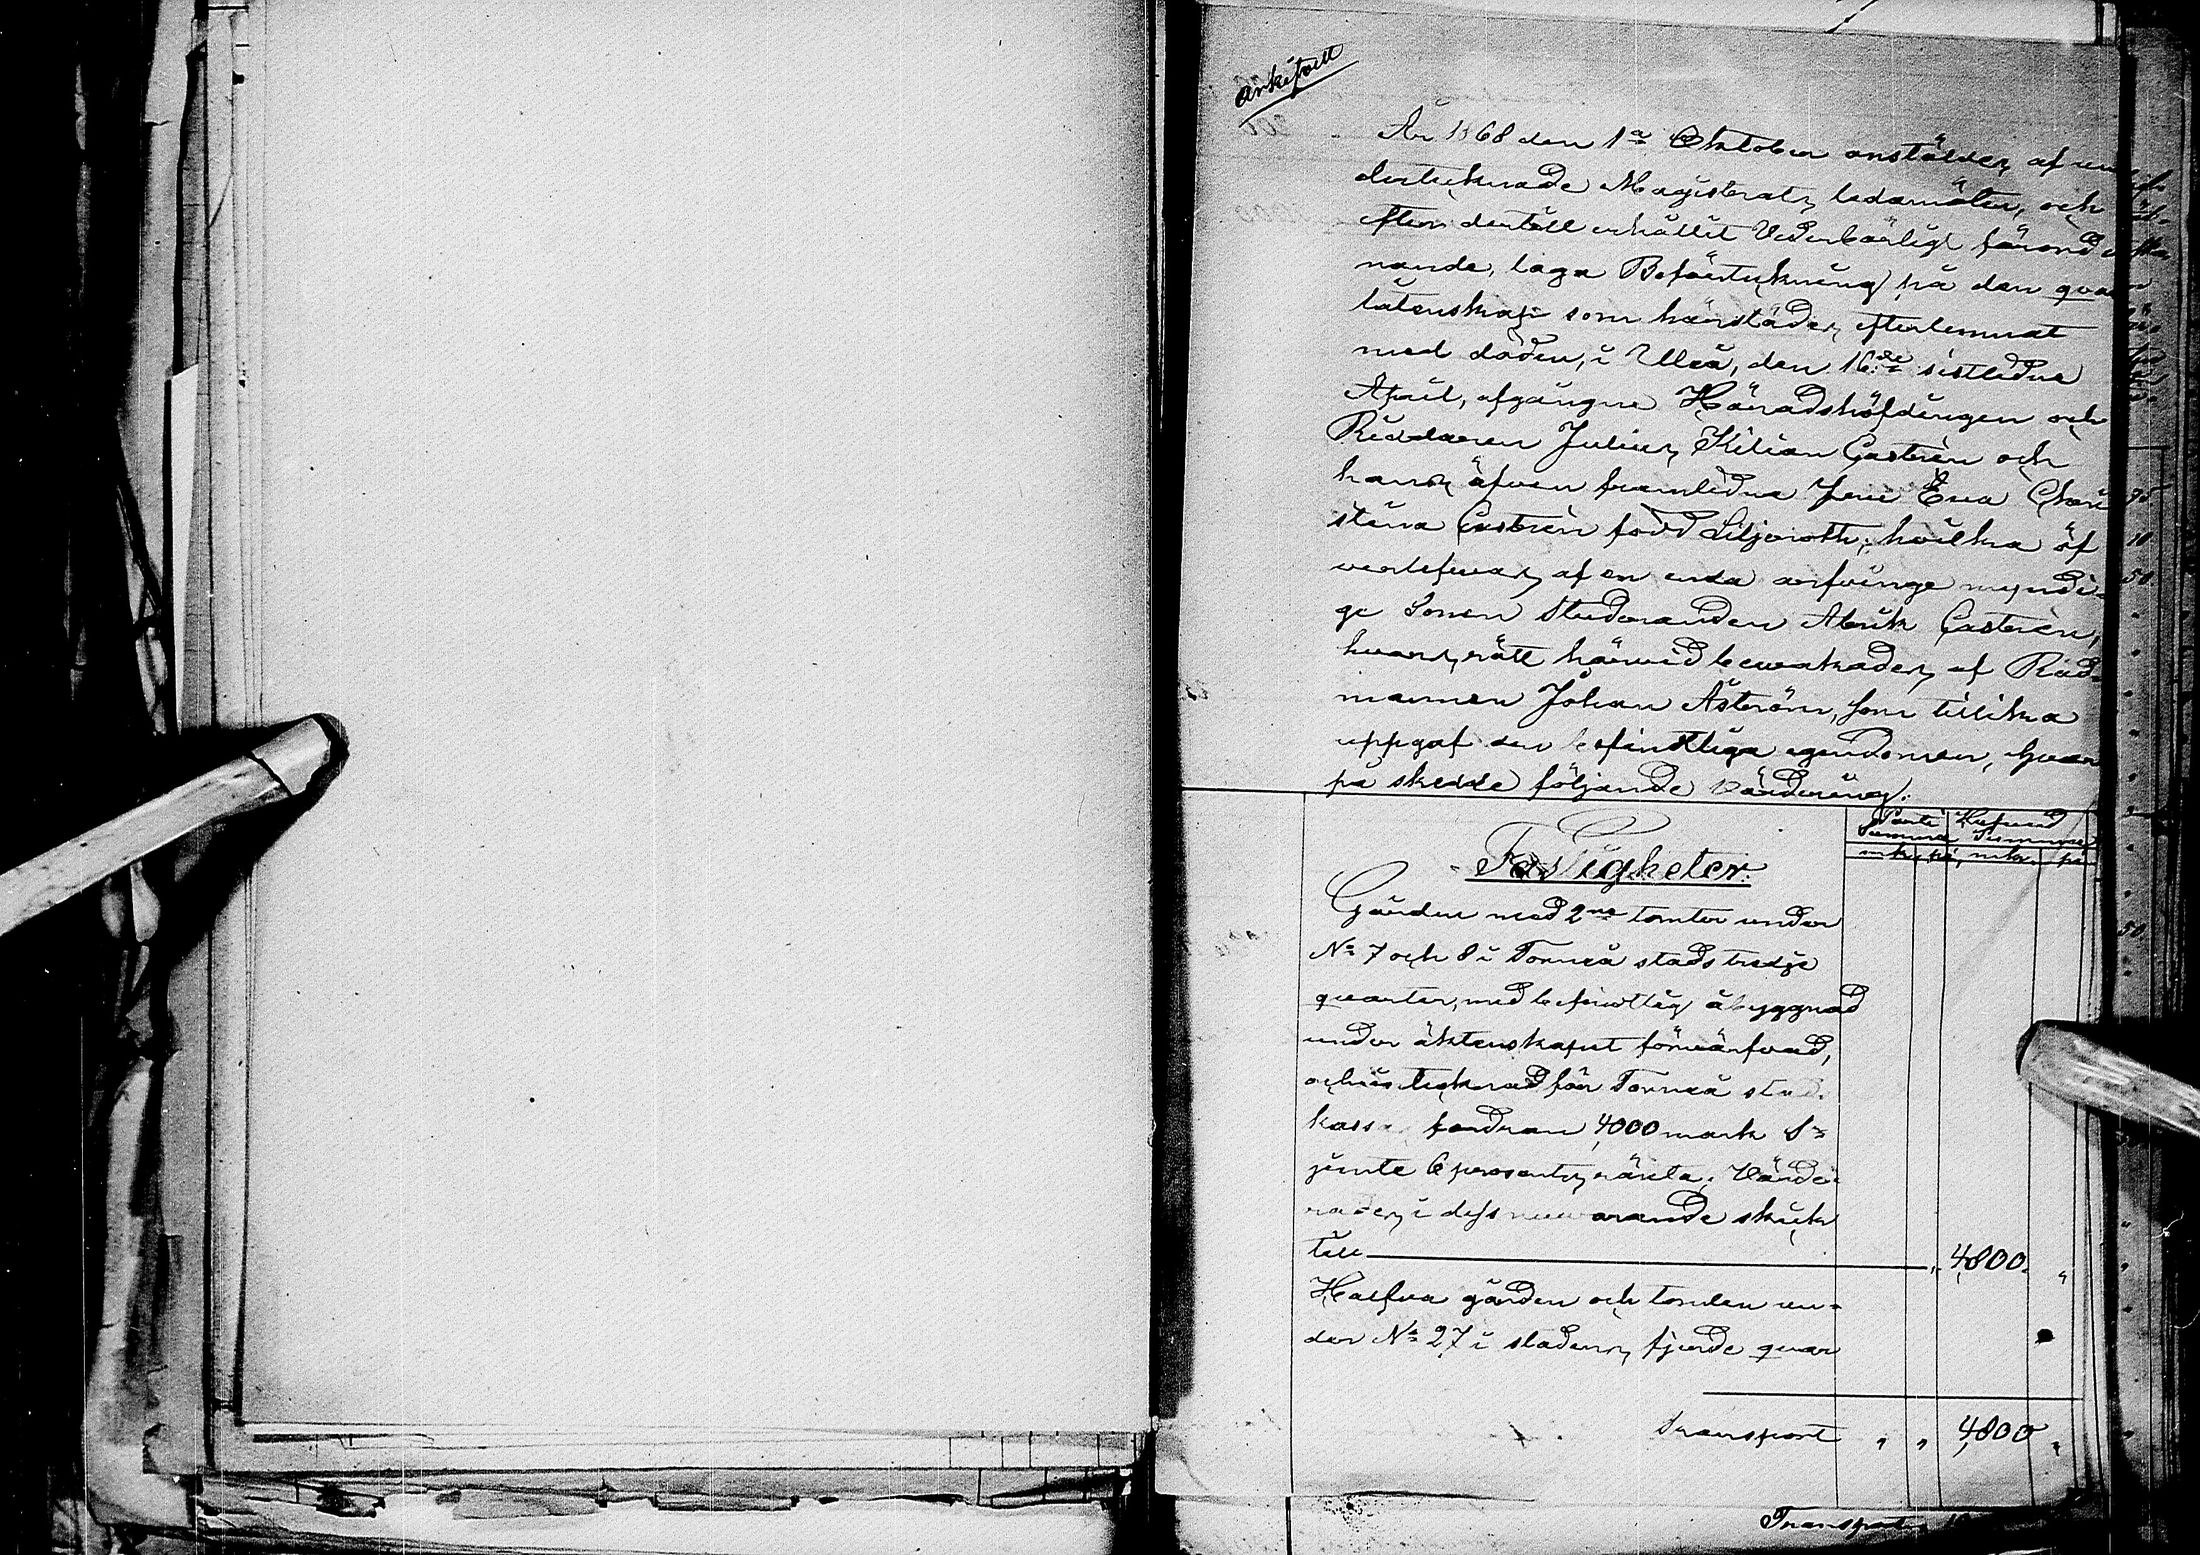 År 1868 den 1a Oktober anstäldes af un
dertecknade Magistrats ledamöter, och
efter dertill erhållit Vederbörligt förord
nande, laga Boförteckning på den qvar
låtenskap som härstädes efterlemnat
med döden, i Uleå, den 16de sistledne
April, afgångne Häradshöfdingen och
Riddaren Julius Kilian Castrén och
hans äfven framlidna Fru Eva Chri
stina Castrén född Liljeroth, hvilka öf
verlefvas af en enda arfvinge myndi-
ge Sonen Studeranden Alrik Castrén,
hvars rätt härvid bevakades af Råd-
mannen Johan Åström, som tillika
uppgaf den befintliga egendomen, hvar
på skedde följande värdering:
Parti Hufvud
Summa Summa
mk pi mk pi
Fastigheter.
Gården med 2ne tomter under
No 7 och 8 i Torneå stads tredje
quarter, med befintlig åbyggnad
under äktenskapet förvärfvad,
och intecknad för Torneå stads
kassa fordran 4000 mark S
jemte 6 prosents ränta; Värde-
rades i dess nuvarande skick
till 4800. "
Halfva gården och tomten un-
der No 27 i stadens fjerde quar
Transport " " 4800 "
Transport